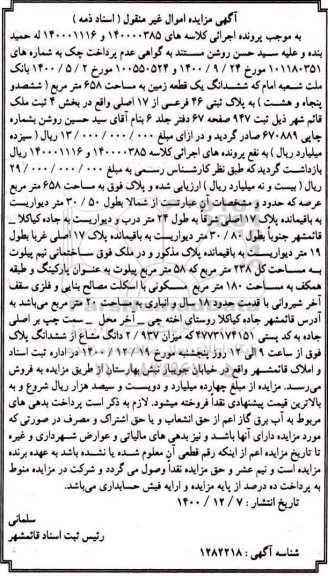 آگهی مزایده اموال غیر منقول ( اسناد ذمه )
به موجب پرونده اجرائی کلاسه های ۱۴۰۰۰۰۳۸۵ و ۱۴۰۰۰۱۱۱۶ له حمید
بنده و علیه سید حسن روشن مستند به گواهی عدم پرداخت چک به شماره های
۱۰۱۱۸۰۳۵۱ مورخ ۲۴ / ۹ / ۱۴۰۰ و ۱۰۰۵۵۰۵۲۴ مورخ ۲ / ۵ / ۱۴۰۰ بانک
ملت شعبه امام که ششدانگ یک قطعه زمین به مساحت ۶۵۸ متر مربع ( ششصدو
پنجاه و هشت ) به پلاک ثبتی ۴۶ فرعی از ۱۷ اصلی واقع در بخش ۴ ثبت ملک
قائم شهر ذیل ثبت ۹۴۷ صفحه ۶۷ دفتر جلد ۶ بنام آقای سید حسین روشن بشماره
چاپی ۶۷۰۸۸۹ صادر گردید و در ازای مبلغ ۰۰۰ / ۰۰۰ / ۰۰۰ / ۱۳ ریال ( سیزده
میلیارد ریال ) به نفع پرونده های اجرائی کلاسه ۱۴۰۰۰۰۳۸۵ و ۱۴۰۰۰۱۱۱۶
بازداشت گردید که طبق نظر کارشناس رسمی به مبلغ ۰۰۰ / ۰۰۰ / ۰۰۰ / ۲۹
ریال ( بیست و نه میلیارد ریال ) ارزیابی شده و پلاک فوق به مساحت ۶۵۸ متر مربع
عرصه که حدود و مشخصات آن عبارتست از شمالا بطول ۵۰ / ۳۰ متر دیواریست
به باقیمانده پلاک ۱۷ اصلی شرقاً به طول ۲۴ متر درب و دیواریست به جاده کیاکلا _
قائمشهر جنوباً بطول ۸۰ / ۳۰ متر دیواریست به باقیمانده پلاک ۱۷ اصلی غربا بطول
۱۹ متر دیواریست به باقیمانده پلاک مذکور و در ملک فوق ساختمانی نیم پیلوت
به مساحت کل ۲۳۸ متر مربع که ۵۸ متر مربع پیلوت به عنوان پارکینگ و طبقه
همکف به مساحت ۱۸۰ متر مربع مسکونی با اسکلت مصالح بنایی و فلزی سقف
آخر شیروانی با قدمت حدود ۱۸ سال و انباری به مساحت ۲۰ متر مربع می‌باشد به
آدرس قائمشهر جاده کیاکلا روستای اخته چی _ آخر محل _ سمت چپ بر اصلی
جاده به کد پستی ۴۷۷۳۱۷۴۱۵۱ که میزان ۹۳۷ / ۲ دانگ مشاع از ششدانگ پلاک
فوق از ساعت ۹ الی ۱۲ روز پنجشنبه مورخ ۱۹ / ۱۲ / ۱۴۰۰ در اداره ثبت اسناد
و املاک قائمشهر واقع در خیابان جویبار نبش بهارستان از طریق مزایده به فروش
می‌رسد. مزایده از مبلغ چهارده میلیارد و دویست و سیصد هزار ریال شروع و به
بالاترین قیمت پیشنهادی نقداً فروخته میشود. لازم به ذکر است پرداخت بدهی های
مربوط به آب برق گاز اعم از حق انشعاب و یا حق اشتراک و مصرف در صورتی که
مورد مزایده دارای آنها باشد و نیز بدهی های مالیاتی و عوارض شهرداری و غیره
تا تاریخ مزایده اعم از اینکه رقم قطعی آن معلوم شده یا نشده باشد به عهده برنده
مزایده است و نیم عشر و حق مزایده نقداً وصول می گردد و شرکت در مزایده منوط
به پرداخت ده درصد از پایه مزایده و ارایه فیش حسابداری می‌باشد.
تاریخ انتشار : ۷ / ۱۲ / ۱۴۰۰
سلمانی
رئیس ثبت اسناد قائمشهر
شناسه آگهی : ۱۲۸۲۲۱۸